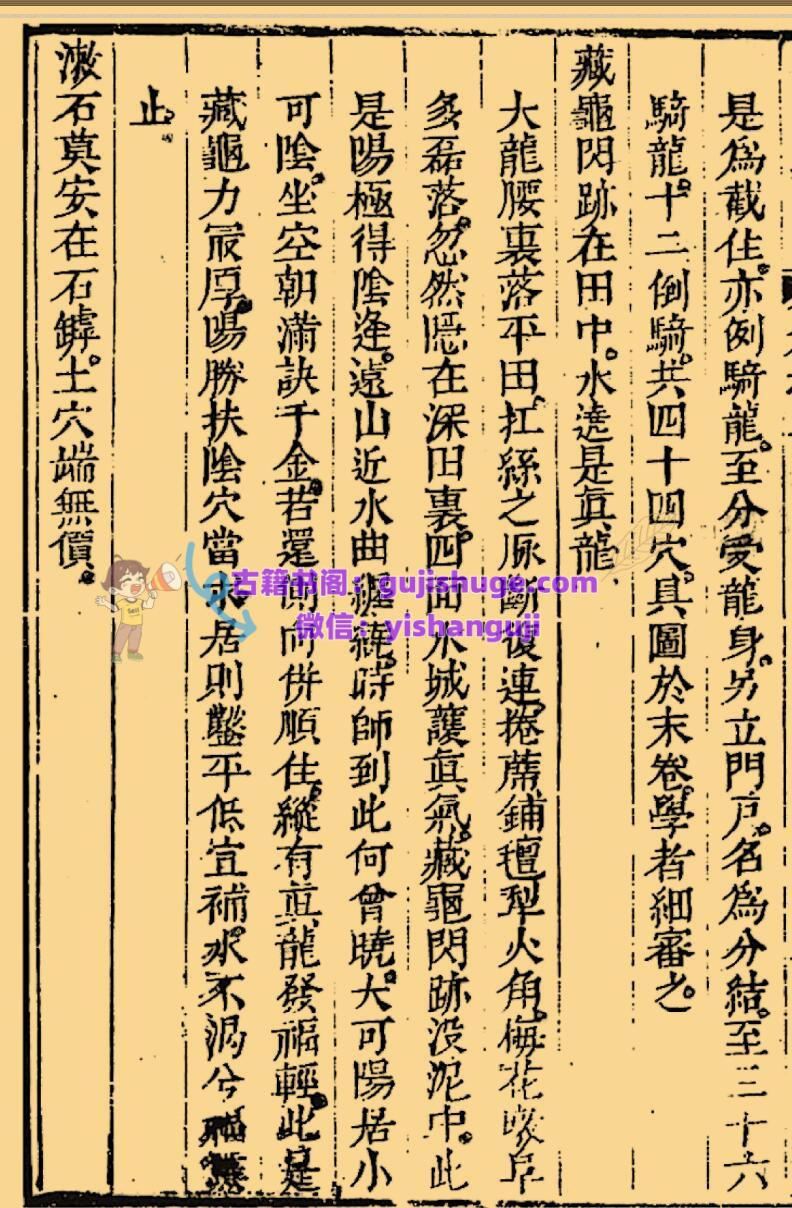 是爲截住亦例騎龍至分受龍身另立門戸名爲分結至三十六
騎龍十二倒騎共四十四穴具圖於末卷學者細審之
藏龜閃跡在田中水遶是眞龍
大龍腰裏落平田扛絲之脉斷復連捲蓆鋪氊犁火角梅花
多磊落忽然隱在深田裏四面水城護眞氣藏龜閃跡没泥中此
是陽極得陰逢遠山近水曲纏綿時師到此何曾曉大可陽居小
可陰坐空朝滿訣千金若還向併順住縱有眞龍發福輕此是
藏龜力最厚陽勝扶陰穴當求居則鑿平低宜補水不涸兮福
止
漱石莫安在石罅土穴端無價
古籍书阁：gujishuge.com
微信：yishanguji